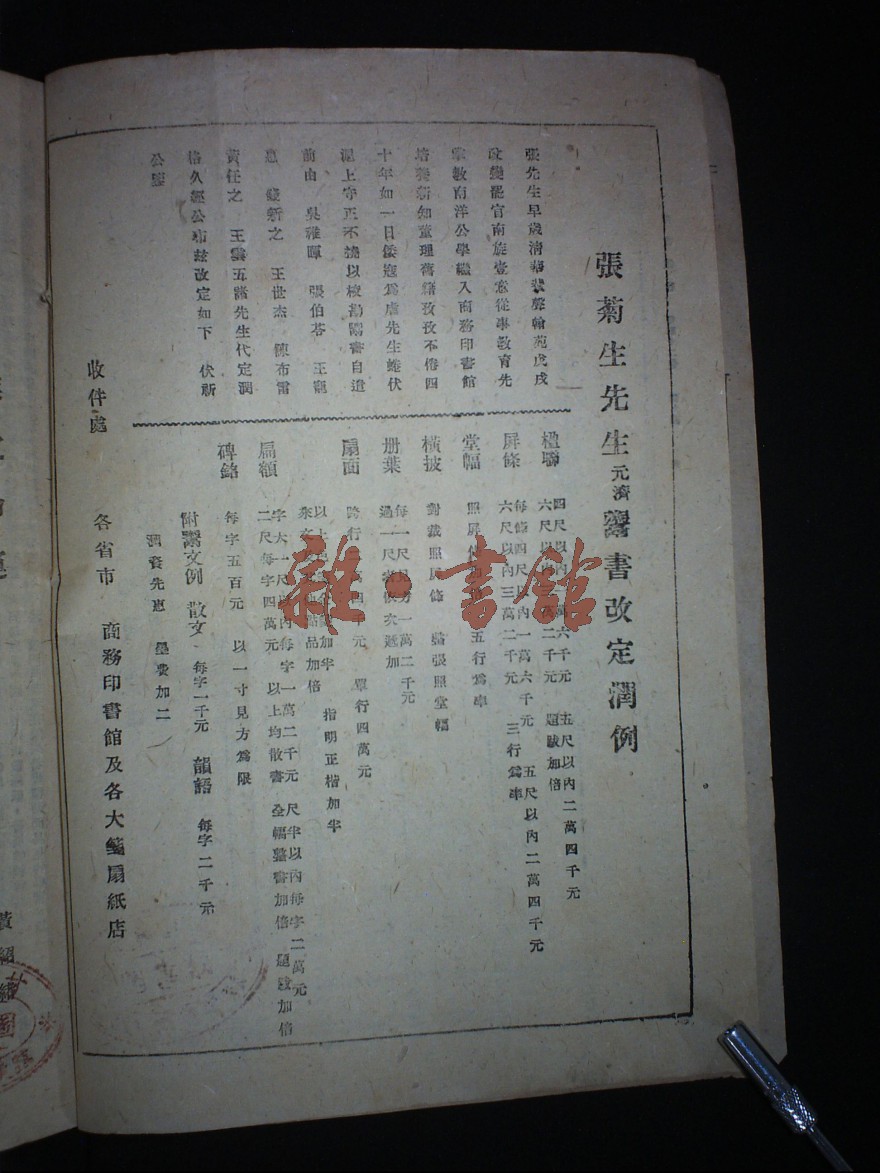 張菊生先生元濟鬻書改定潤例
張先生早歲清華蜚聲翰苑戊戌
政變罷官南旋壹意從事教育先
掌教南洋公學繼入商務印書館
培養新知董理舊籍孜孜不倦四
十年如一日倭寇為虐先生蜷伏
滬上守正不撓以校勘鬻書自遣
前由 吳稚暉 張伯苓 王寵
惠 錢新之 王世杰 陳布雷
黃任之 王雲五諸先生代定潤
格久經公布茲改定如下 伏祈
公鑒
楹聯
四尺以內 萬六千元 五尺以內二萬四千元
六尺以 萬二千元 題跋加倍
屏條
每條四尺以內一萬六千元 五尺以內二萬四千元
六尺以內三萬二千元 三行為率
堂幅
照屏條 五行為率
橫披
對裁照屏條 整張照堂幅
册葉
每一尺見方一萬二千元
過一尺者依次遞加
扇面
跨行 萬四千元 單行四萬元
以上 加半 指明正楷加半
來文 點品加倍
扁額
字大一尺以內每字一萬二千元 尺半以內每字二萬元
二尺每字四萬元 以上均散書 全幅整書加倍 題跋加倍
碑銘
每字五百元 以一寸見方為限
附鬻文例 散文 每字一千元 韻語 每字二千元
潤資先惠 墨費加二
收件處
各省市 商務印書館及各大箋扇紙店
雜·書館